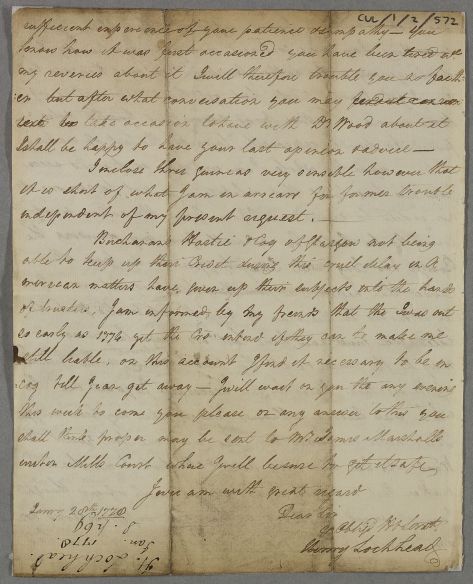 CUL/1/2/572
sufficient experience of your patience & sympathy — you
know how it was first occasioned you have been tired wt
my reveries about it I will therefore trouble you no farth
er but after what conversation you may
like occasion to have with Dr Wood about it
I shall be happy to have your last opinion & advice —
I inclose three guineas very sensible however that
it is short of what I am in arrears for former trouble
independent of my present request. —
Buchanans Hastie & Coy of Glasgow not being
able to keep up their Credit during this cruel delay in A
merican matters have given up their subjects into the hands
of trustees, I am informed by my friends that tho I was out
so early as 1774 yet the Crs intend if they can to make me
still liable, on this account I find it necessary to be in
cog till I can get away — I will wait on you tho any evening
this week to come you please or any answer to this you
shall think proper may be sent to Mr James Marshalls
Mills Court where I will be sure to get it safe
I ever am with great regard
Dear Sir
Your
Henry Lochhead
Janry 28th 1778
H. Lochhead.
Jan. 1778